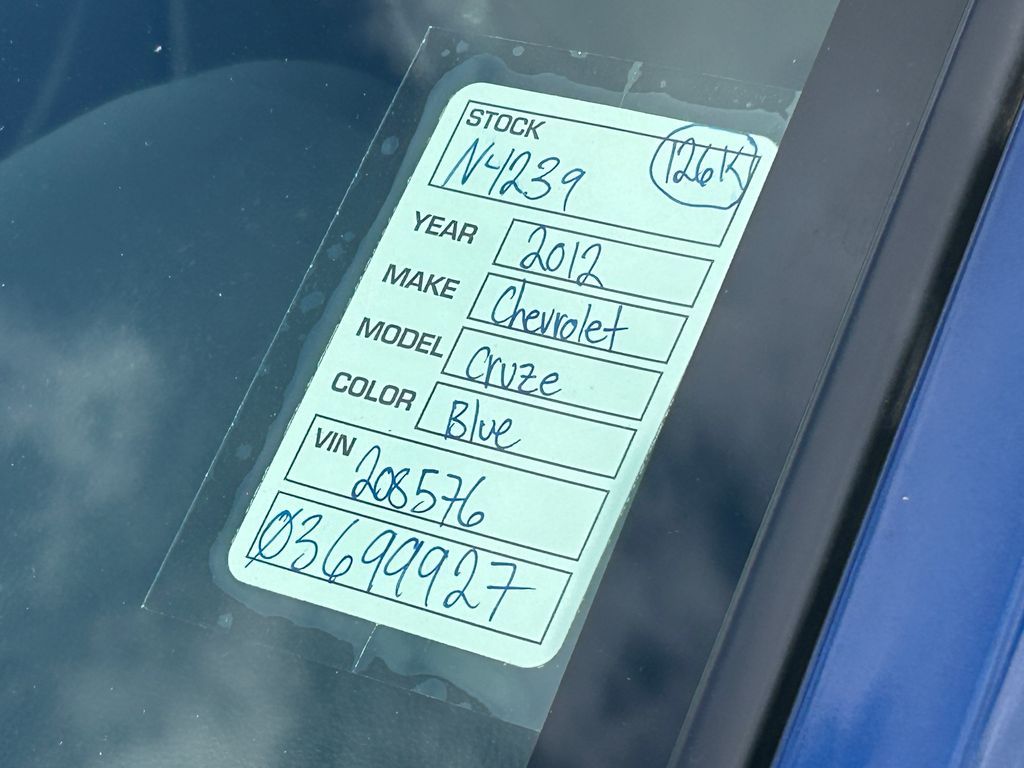 STOCK
N4239 126K
YEAR 2012
MAKE Chevrolet
MODEL Cruze
COLOR Blue
VIN 208576
03699927